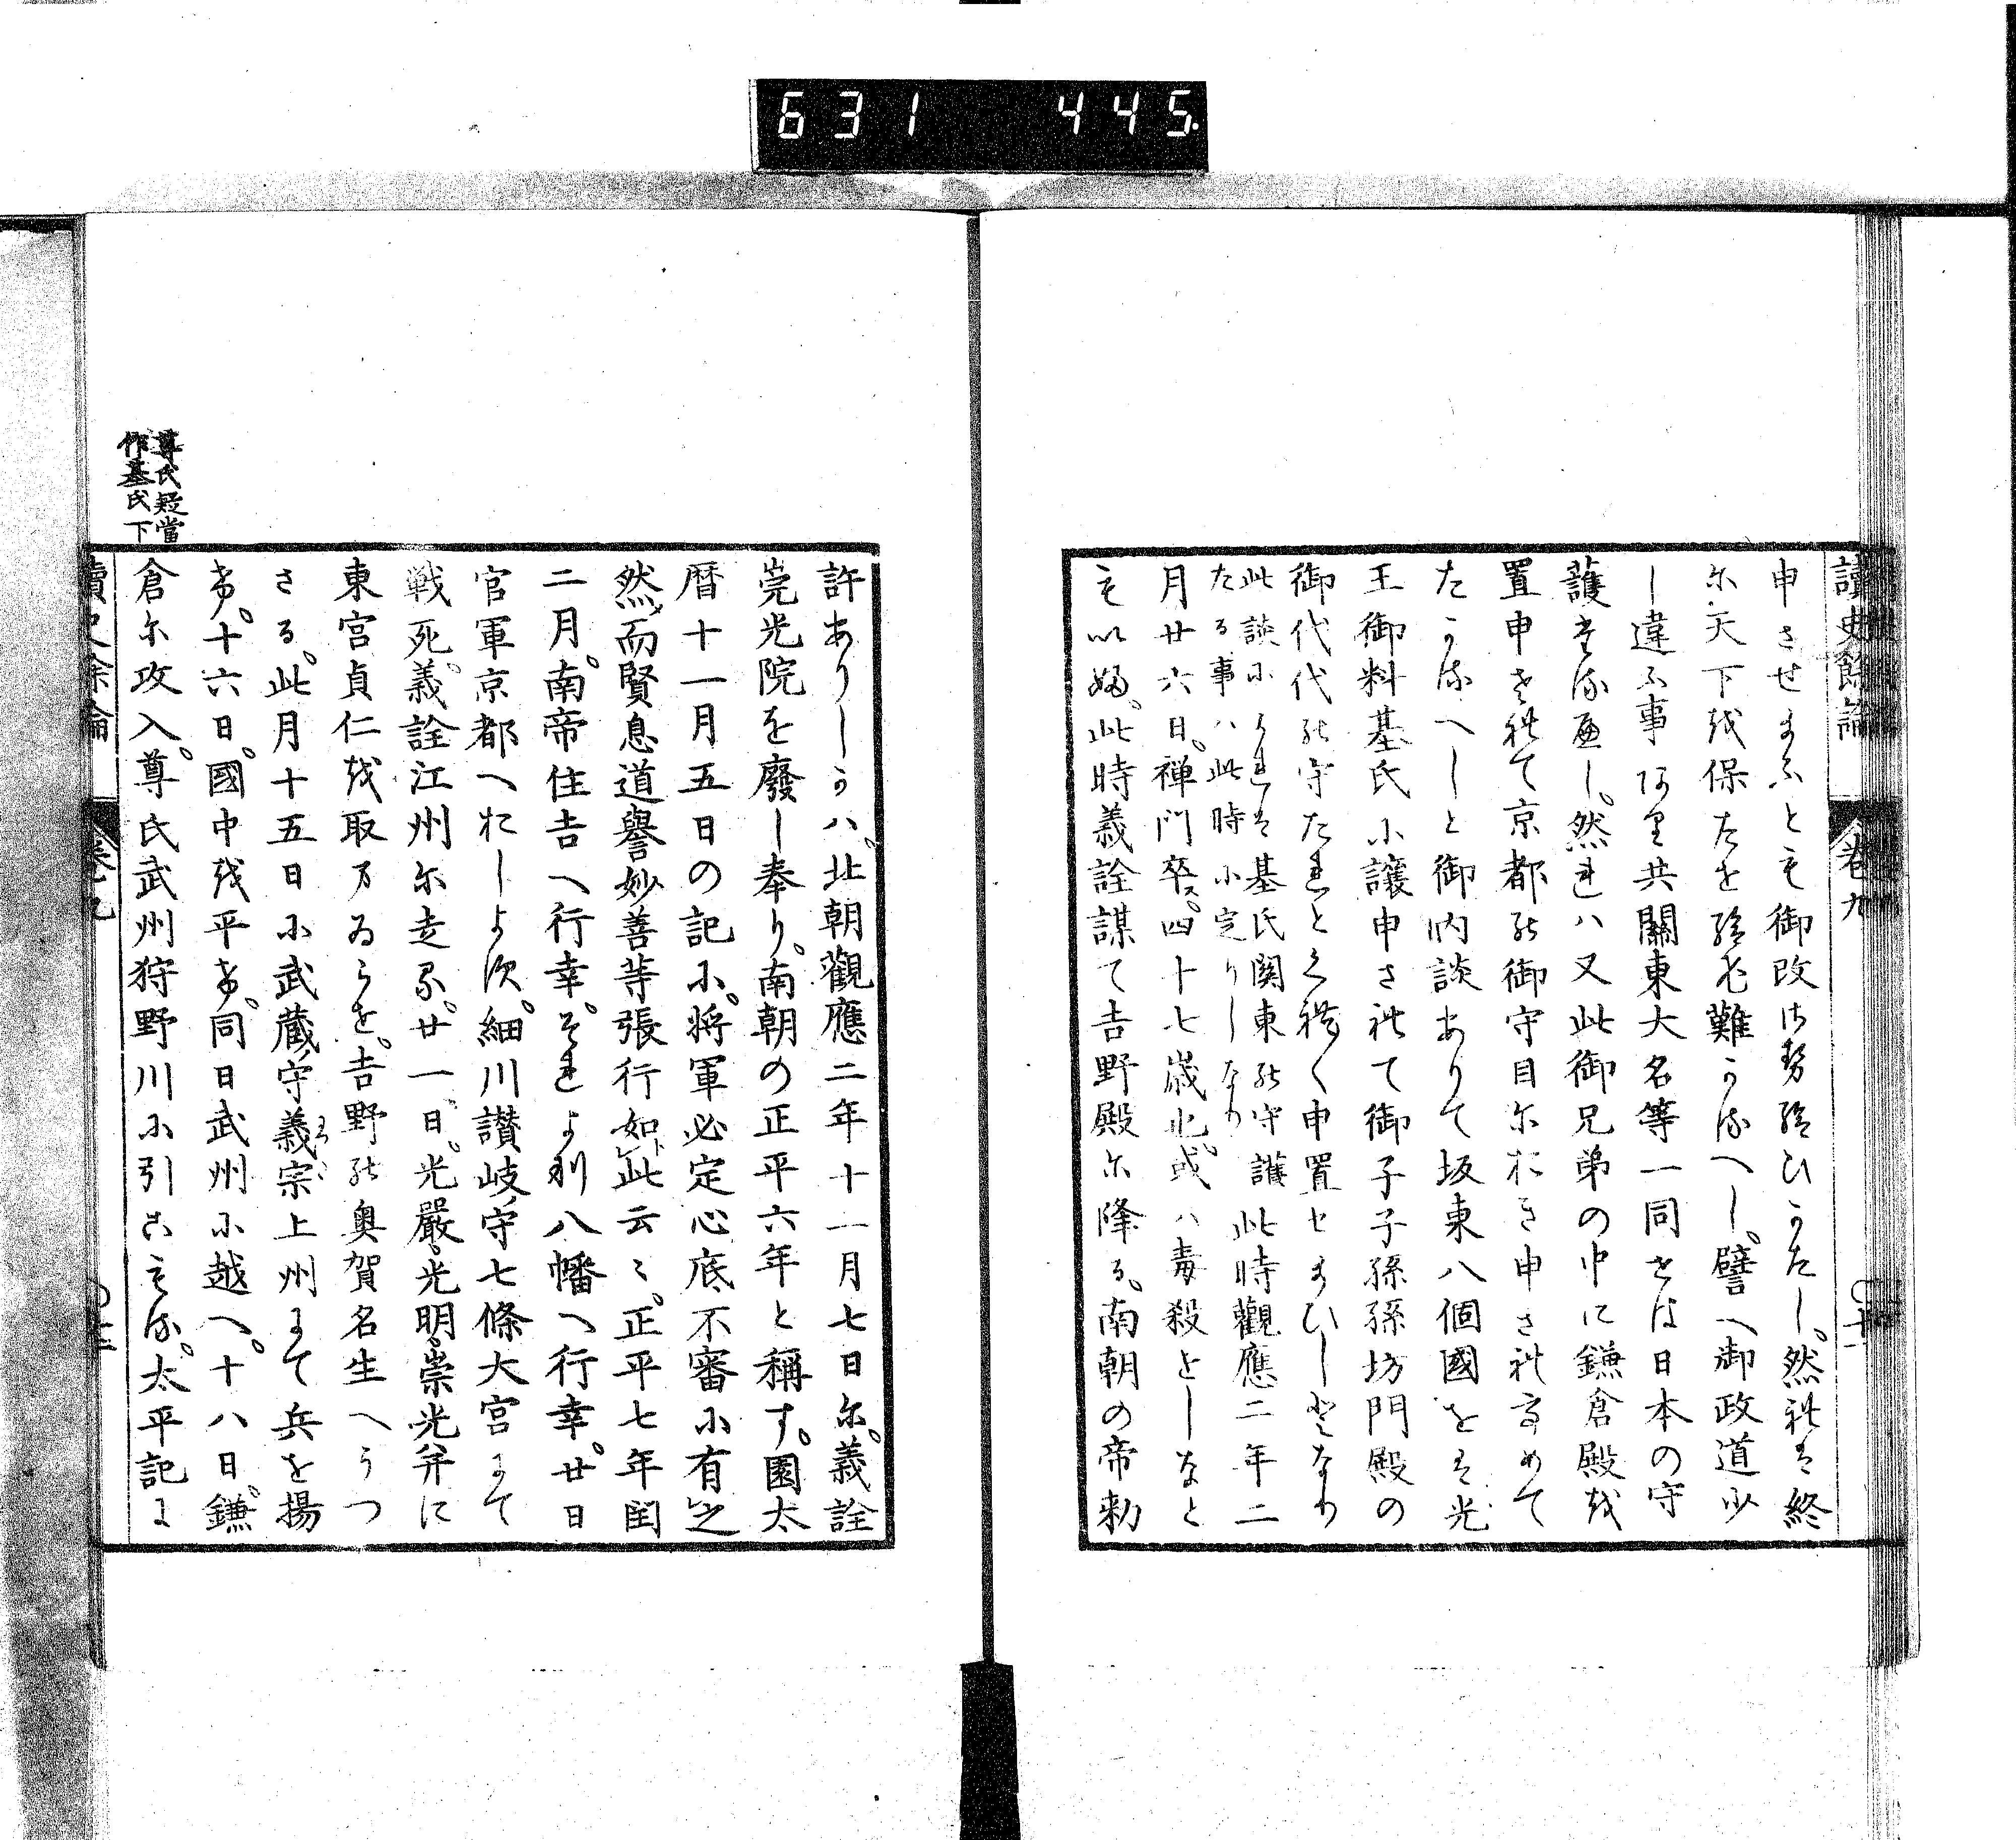 631 445.
讀史餘論 卷九 〇十一
申させまふとも御改は努給ひかたし。然れは終
に天下を保たせ給ひ難かるへし。譬へ御政道少
し違ふ事ありと共關東大名等一同せは日本の守
護たるへし。然れハ又此御兄弟の中に鎌倉殿を
置申されて京都の御守目におき申され
たかるへしと御内談ありて坂東八個國をは光
王御料基氏に譲申されて御子子孫孫坊門殿の
御代代の守たれとくれく申置せまひしとなり
此談によれは基氏関東の守護
たる事ハ此時に定りしなり
此時觀應二年二
月廿六日。禅門卒ス。四十七歳也。或ハ毒殺としなと
もいふ。此時義詮謀て吉野殿に降る。南朝の帝勅
許ありしかハ。北朝觀應二年十一月七日に。義詮
崇光院を廢し奉り。南朝の正平六年と稱す。園太
暦十一月五日の記に。将軍必定心底不審に有之
然而賢息道譽妙善等張行如此云々。正平七年閏
二月。南帝住吉へ行幸。それより八幡へ行幸。廿日
官軍京都へおしよす。細川讃岐ノ守七條大宮にて
戦死。義詮江州に走る。廿一日。光嚴光明崇光并に
東宮貞仁を取まゐらせ。吉野の奥賀名生へうつ
さる。此月十五日に武蔵ノ守義宗上州にて兵を揚
け。十六日。國中を平け。同日武州に越へ。十八日。鎌
倉に攻入。尊氏武州狩野川に引こもる。太平記に
尊氏疑當
作基氏下
讀史餘論 卷九